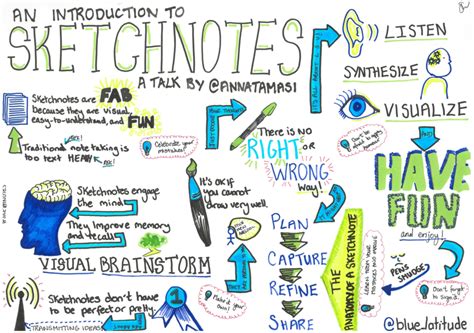 AN INTRODUCTION TO
SKETCHNOTES
A TALK BY @ANNATAMASI
Sketchnotes are FAB
because they are visual,
easy-to-understand, and FUN
Traditional note taking is
too text HEAVY
Celebrate your
mistakes!
There is no
RIGHT
or
WRONG
way!
LISTEN
SYNTHESIZE
VISUALIZE
AND
HAVE
FUN
and enjoy!
Sketchnotes engage
the mind
They improve memory
and recall
VISUAL BRAINSTORM
It's OK if
you cannot
draw very well
PLAN
CAPTURE
REFINE
SHARE
THE ANATOMY OF A SKETCHNOTE
LEARN FROM YOUR
MISTAKES AND
Don't forget
to sign it.
Sketchnotes don't have
to be perfect or pretty
TRANSMITTING IDEAS
Make it your
own!
@blue_latitude